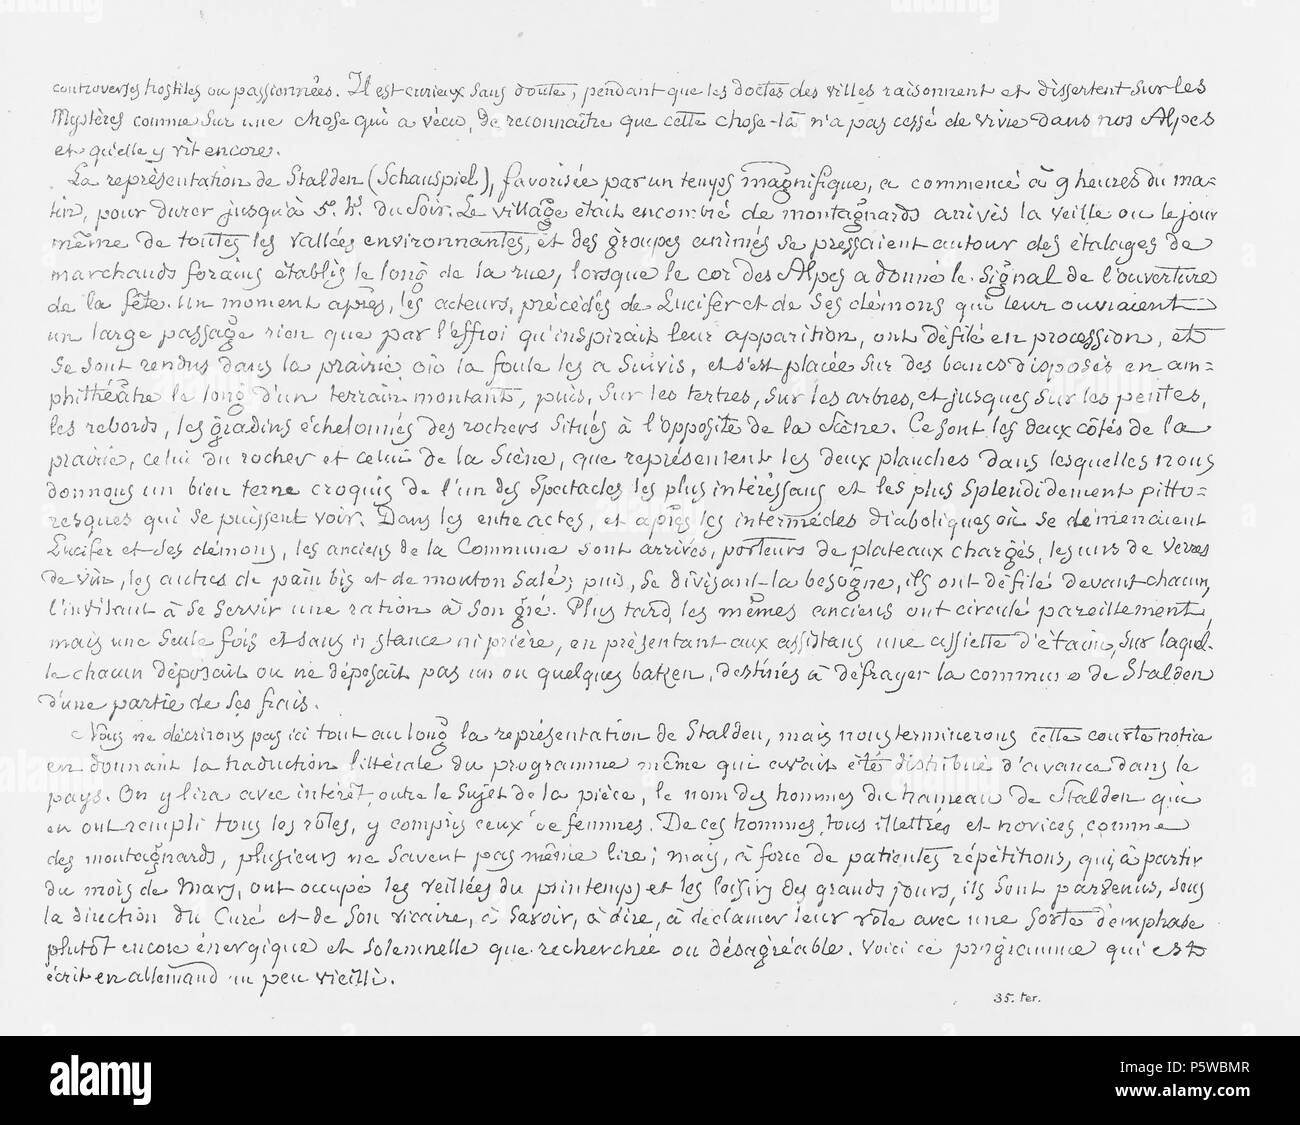 controverses hostiles ou passionnées. Il est curieux sans doute, pendant que les doctes des villes raisonnent et dissertent sur les
Mystères comme sur une chose qui a vécu, de reconnaître que cette chose-là n'a pas cessé de vivre dans nos Alpes
et qu'elle y vit encore.
La représentation de Stalden (Schauspiel), favorisée par un temps magnifique, a commencé à 9 heures du ma-
tin, pour durer jusqu'à 5. h. du soir. Le village était encombré de montagnards arrivés la veille ou le jour
même de toutes les vallées environnantes, et des groupes animés se pressaient autour des étalages de
marchands forains établis le long de la rue, lorsque le cor des Alpes a donné le signal de l'ouverture
de la fête. Un moment après, les acteurs, précédés de Lucifer et de ses démons qui leur ouvraient
un large passage rien que par l'effroi qu'inspirait leur apparition, ont défilé en procession, et
se sont rendus dans la prairie où la foule les a suivis, et s'est placée sur des bancs disposés en am-
phithéâtre le long d'un terrain montant, puis, sur les tertres, sur les arbres, et jusques sur les pentes,
les rebords, les gradins échelonnés des rochers situés à l'opposite de la scène. Ce sont les deux côtés de la
prairie, celui du rocher et celui de la Scène, que représentent les deux planches dans lesquelles nous
donnons un bien terne croquis de l'un des spectacles les plus intéressans et les plus splendidement pitto-
resques qui se puissent voir. Dans les entre actes, et après les intermèdes diaboliques où se démenaient
Lucifer et ses démons, les anciens de la Commune sont arrivés, porteurs de plateaux chargés, les uns de verres
de vin, les autres de pain bis et de mouton salé; puis, se divisant la besogne, ils ont défilé devant chacun,
l'invitant à se servir une ration à son gré. Plus tard, les mêmes anciens ont circulé pareillement,
mais une seule fois et sans instance ni prière, en présentant aux assistans une assiette d'étain, sur laquel-
le chacun déposait ou ne déposait pas un ou quelques batzen, destinés à défrayer la commune de Stalden
d'une partie de ses frais.
Nous ne décrirons pas ici tout au long la représentation de Stalden, mais nous terminerons cette courte notice
en donnant la traduction littérale du programme même qui avait été distribué d'avance dans le
pays. On y lira avec intérêt, outre le sujet de la pièce, le nom des hommes du hameau de Stalden qui
en ont rempli tous les rôles, y compris ceux de femmes. De ces hommes, tous illettrés et novices, comme
des montagnards, plusieurs ne savent pas même lire; mais, à force de patientes répétitions, qui à partir
du mois de Mars, ont occupé les veillées du printemps et les loisirs des grands jours, ils sont parvenus, sous
la direction du Curé et de son vicaire, à savoir, à dire, à déclamer leur rôle avec une sorte d'emphase
plutôt encore énergique et solemnelle que recherchée ou désagréable. Voici ce programme qui est
écrit en allemand un peu vieilli.
35. ter.
alamy
Image ID: P5WBMR
www.alamy.com